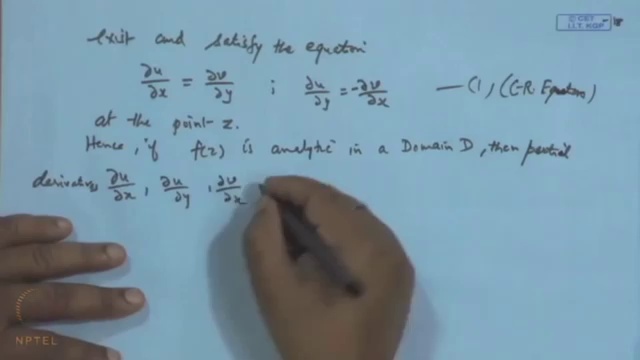 © CET
I.I.T. KGP
exist and satisfy the equation
∂u/∂x = ∂v/∂y ; ∂u/∂y = -∂v/∂x — (1) (C-R. Equations)
at the point z.
Hence, if f(z) is analytic in a Domain D, then partial
derivatives ∂u/∂x, ∂u/∂y, ∂v/∂x
NPTEL